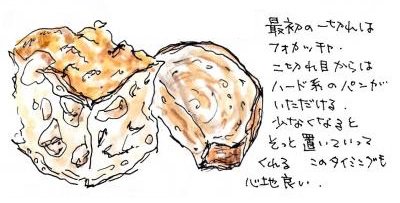 最初の一切れは
フォカッチャ.
二切れ目からは
ハード系のパンが
いただける.
少なくなると
そっと置いていって
くれる このタイミングも
心地良い.